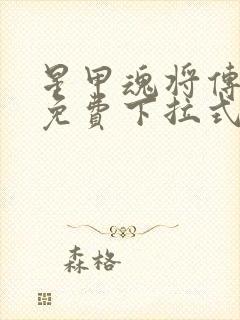 星甲魂将傳
免費下拉式
森格